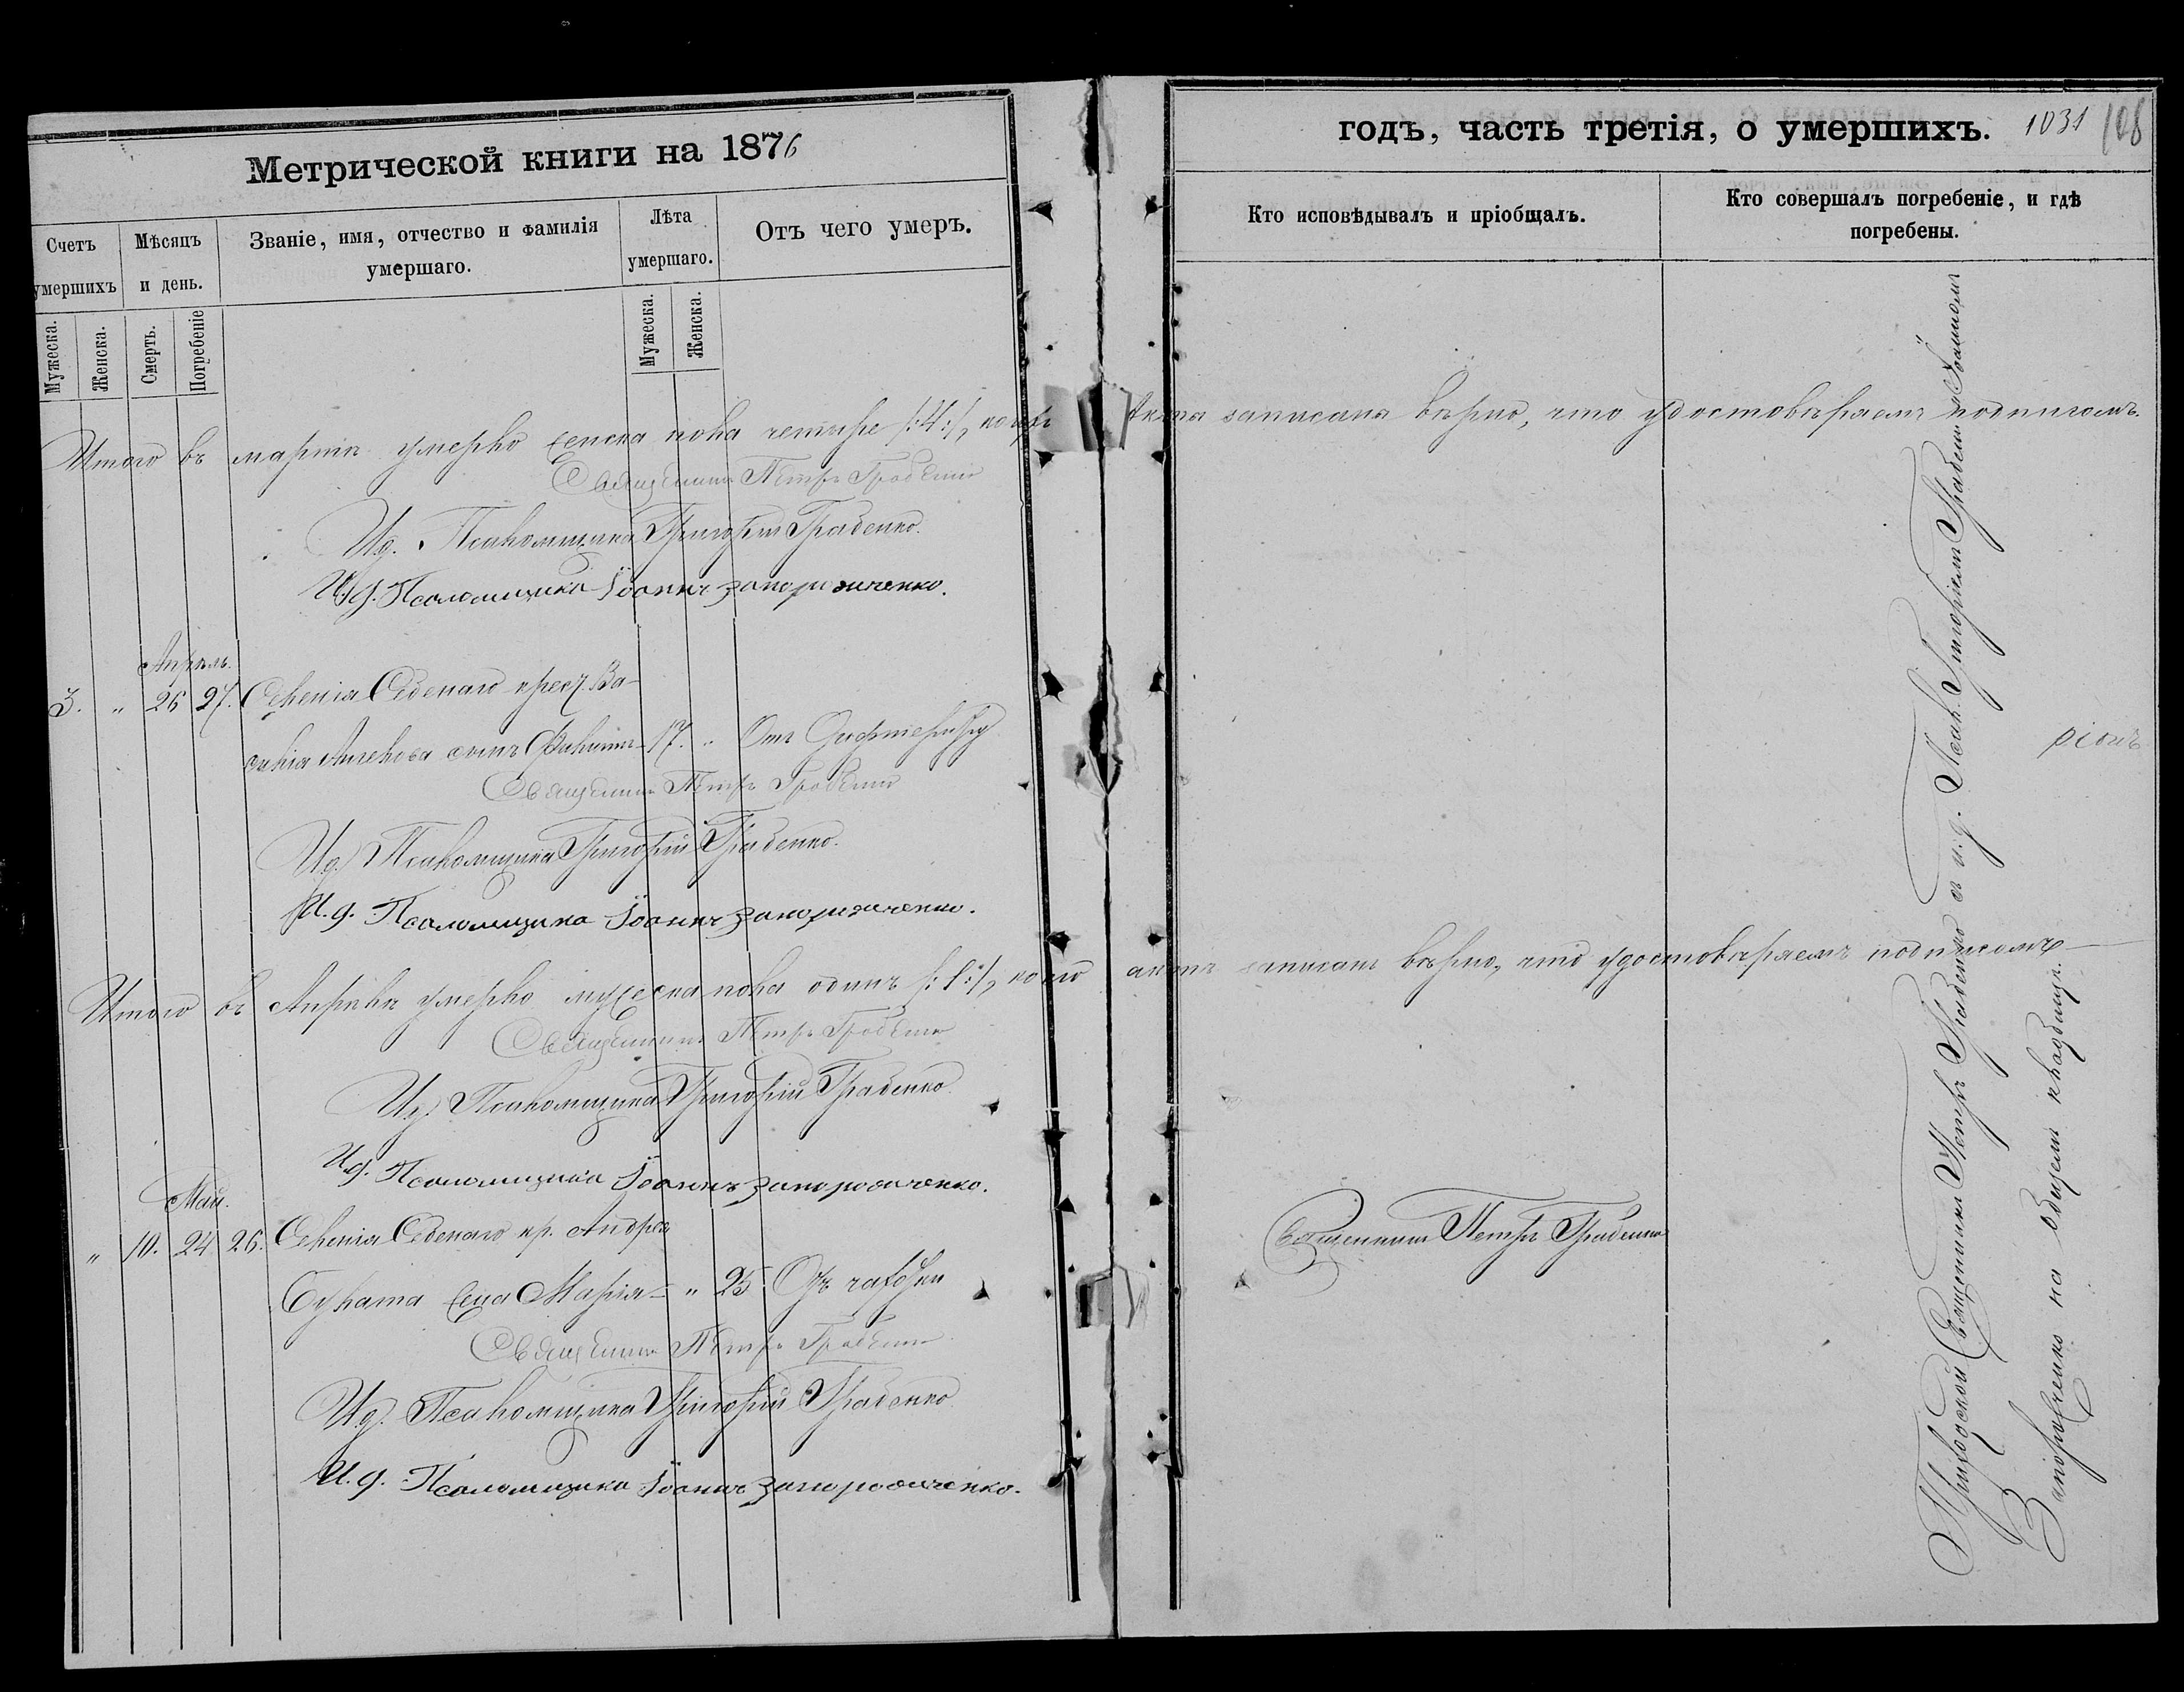 Метрической книги на 1876
годъ, часть третія, о умершихъ. 1031 108
Счетъ умершихъ
Мѣсяцъ и день.
Званіе, имя, отчество и фамилія умершаго.
Лѣта умершаго.
Отъ чего умеръ.
Кто исповѣдывалъ и пріобщалъ.
Кто совершалъ погребеніе, и гдѣ погребены.
Мужеска.
Женска.
Смерть.
Погребеніе
Мужеска.
Женска.
Итого въ мартѣ умерло женска пола четыре /:4:/, записана вѣрно, что удостовѣряемъ подписомъ.
Священникъ Петръ Грабенко
И.д. Псаломщика Григорій Грабенко.
И.д. Псаломщика Іоаннъ Запорожченко.
Апрѣль.
3. „ 26 27. Селенія крест. Ва-
сылія сынъ 17. „ Отъ
Священникъ Петръ Грабенко
И.д. Псаломщика Григорій Грабенко.
И.д. Псаломщика Іоаннъ Запорожченко.
Итого въ Апрѣлѣ умерло мужеска пола одинъ /:1:/, коего актъ записанъ вѣрно, что удостовѣряемъ подписомъ
Священникъ Петръ Грабенко
И.д. Псаломщика Григорій Грабенко
И.д. Псаломщика Іоаннъ Запорожченко.
Май.
„ 10. 24 26. Селенія кр. Андрея
жена Марія „ 25. Отъ
Священникъ Петръ Грабенко
И.д. Псаломщика Григорій Грабенко
И.д. Псаломщика Іоаннъ Запорожченко.
Священникъ Петръ Грабенко
Приходской Священникъ Петръ Грабенко съ и.д. Псал. Григоріемъ Грабенко Іоанномъ
Запорожченко на общемъ кладбищѣ.